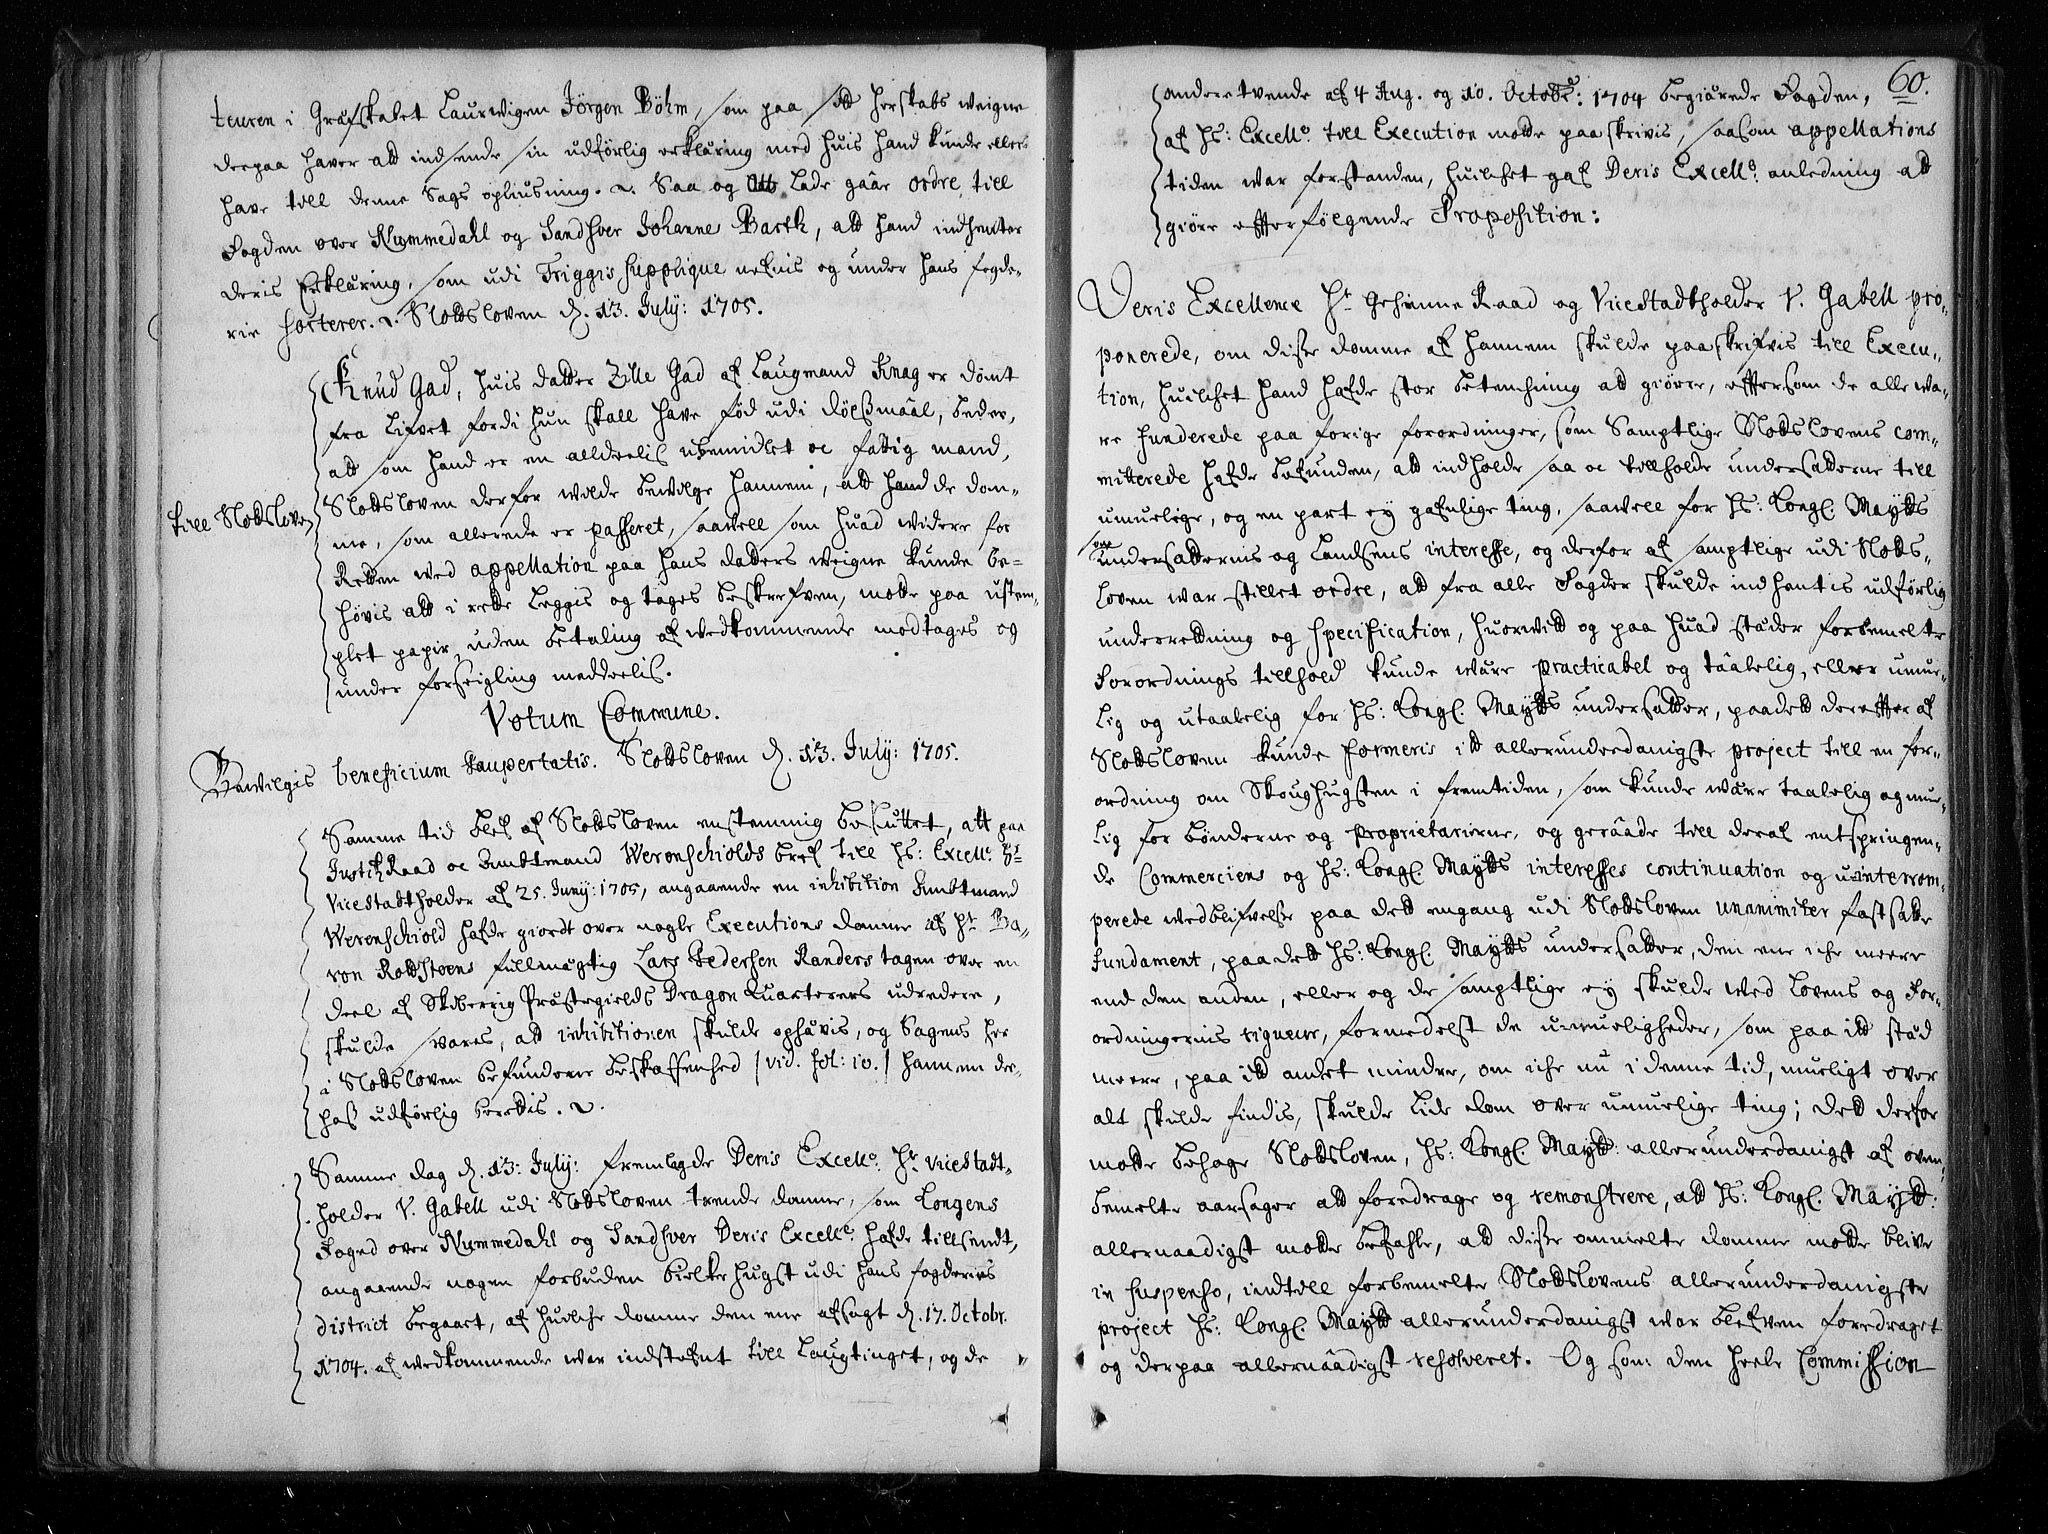 teuren i Grafskabet Laurwigen Jörgen Böhm, som paa sitt herskabs weigne
derpaa haver att indsende sin udförlig erklæring med huis hand kunde eller
have till denne Sags opliusning. Saa og lade gaar ordre till
Fogden over Nummedahl og Sandsver Johanne Barth, att hand indhenter
deris Erklæring, som udi Friggis Supplique nefnis og under hans fogde-
rie sorterer. Slottsloven d. 13. July: 1705.
Knud Gad, huis datter Zille Gad af Laugmand Knag er dömt
fra Lifvet fordi hun skall have fød udi dölgßmaal, beder,
att som hand er en alldeelis ubemidlet oc fattig mand,
till Slottsloven
Slottsloven derfor wilde bewilge hannem, att hand de dom-
me, som allerede er passeret, saavell som huad widere for
Retten wed appellation paa hans datters weigne kunde be-
hövis att i rette leggis og tages beskrefven, motte paa ustem-
plet papir uden betaling af wedkommende modtages og
under forseigling meddeelis.
Votum Commune.
Bewilgis beneficium paupertatis. Slottsloven d. 13. July: 1705.
Samme tid blef af Slottsloven enstemmig besluttet, att paa
JustitzRaad oc Ambtmand Werenschiolds bref till Hs: Excell. Hr
ViceStadtholder af 25. Juny: 1705, angaaende en inhibition Ambtmand
Werenschiold hafde giordt over nogle Executions domme af Hr Ba-
ron Rottstens fullmægtig Lars Pedersen Randers tagen over en
deel af Skiberrig Præstegields Dragon Quarterers udredere,
skulde svares, att inhibitionen skulde ophævis, og Sagens her
i Slottsloven befundene beskaffenhed / vid. fol: 10. / hannem der-
hoß udförlig berettis.
Samme dag d. 13: July: fremlagde Deris Excell: Hr Vicestadt-
holder V. Gabell udi Slottsloven trende domme, som Kongens
Foged over Nummedahl og Sandsver Deris Excell: hafde tillsendt,
angaaende nogen forbuden bielkehugst udi hans fogderies
district begaaet, af huilche domme den ene afsagt d. 17. Octobr.
1704. af wedkommende war indstefnt till Laugtinget, og de
60.
andre tvende af 4 Aug. og 10. Octobr: 1704 begiærede Fogden,
af Hs: Excell. till Execution motte paaskrivis, saasom appellations
tiden war forstanden, huilchet gaf Deris Excell. anledning att
giöre efterfølgende Proposition:
Deris Excellence Hr Geheime Raad og Vicestadtholder V. Gabell pro-
ponerede, om disse domme af hannem skulde paaskrifvis till Execu-
tion, huilchet hand hafde stor betenchning att giöre, eftersom de alle wa-
re funderede paa forige forordninger, som Samptlige Slottslovens com-
mitterede hafde befunden, att indholde saa oc tillholde undersatterne till
umuelige, og en part ey gafnlige ting, saavell for Hs: Kongl. Maytts
som
undersatternis og Landsens interesse, og derfor af samptlige udi Slotts-
loven war stillet ordre, att fra alle Fogder skulde indhentis udförlig
underretning og specification, huorwitt og paa huad stæder forbemelte
forordnings tillhold kunde wære practicabel og taalelig, eller umue-
lig og utaalelig for Hs: Kongl. Maytts undersatter, paadett derefter af
Slottsloven kunde formeris itt allerunderdanigste project till en for-
ordning om Skoughugsten i fremtiden, som kunde wære taalelig og mue-
lig for bönderne og proprietarierne, og geraade till deraf entspringen-
de Commerciens og Hs: Kongl. Maytts interesses continuation og uinterrom-
perede wedblifvelse paa dett engang udi Slottsloven unanimiter fastsatte
fundament, paadett Hs: Kongl. Maytts undersatter, den ene iche meere
end den anden, eller og de samptlige ey skulde wed lovens og For-
ordningernis rigueur, formedelst de umueligheder, som paa itt stæd
meere, paa itt andet mindre, om iche nu i denne tid, mueligt over
alt skulde findis, skulde lide dom over umuelige ting; dett derfor
motte behage Slottsloven, Hs: Kongl. Maytt: allerunderdanigst af oven-
bemelte aarsager att foredrage og remonstrere, att Hs: Kongl. Maytt:
allernaadigst motte befahle, att disse ommelte domme motte blive
in suspenso, indtill forbemelte Slottslovens allerunderdanigste
project Hs: Kongl. Maytt allerunderdanigst war blefven foredraget
og derpaa allernaadigst resolveret. Og som den heele Commission